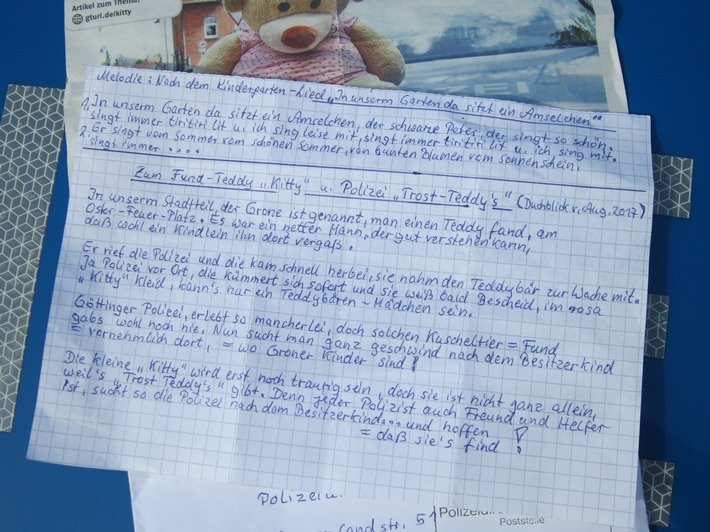 Artikel zum Thema:
gturl.de/kitty
Melodie: Nach dem Kindergarten-Lied „In unserm Garten da sitzt ein Amselchen"
1. In unserm Garten da sitzt ein Amselchen, der schwarze Peter, der singt so schön.
singt immer tiritiri lit u. ich sing leise mit, singt immer tiritiri lit u. ich sing mit.
2. Er singt vom Sommer vom schönen Sommer, von bunten Blumen vom Sonnenschein.
singt immer ....
Zum Fund-Teddy „Kitty" u. Polizei „Trost-Teddy's" (Dachblick v. Aug. 2017)
In unserm Stadtteil, der Grone ist genannt, man einen Teddy fand, am
Osker-Feuer-Platz. Es war ein netter Mann, der gut verstehen kann,
daß wohl ein Kindlein ihn dort vergaß.
Er rief die Polizei und die kam schnell herbei, sie nahm den Teddybär zur Wache mit.
Ja Polizei vor Ort, die kümmert sich sofort und sie weiß bald Bescheid, im rosa
„Kitty" Kleid, kann's nur ein Teddybären-Mädchen sein.
Göttinger Polizei, erlebt so mancherlei, doch solchen Kuscheltier = Fund
gabs wohl noch nie. Nun sucht man ganz geschwind nach dem Besitzerkind
= vornehmlich dort, = wo Groner Kinder sind!
Die kleine „Kitty" wird erst noch traurig sein, doch sie ist nicht ganz allein,
weil's „Trost Teddy's" gibt. Denn jeder Polizist auch Freund und Helfer
ist, sucht so die Polizei nach dem Besitzerkind... und hoffen
= daß sie's find!
Polizei
landstr. 51
Poststelle